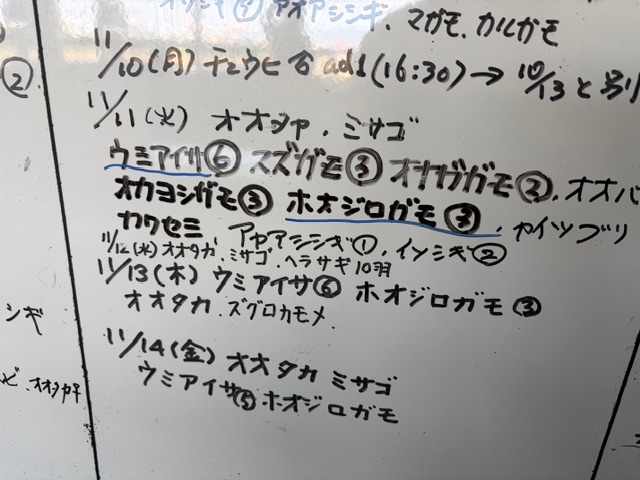 アオアシシギ、マガモ、カルガモ
②
11/10(月)チュウヒ合ad1(16:30)→10/13と
11/11(火) オオタカ、ミサゴ
ウミアイサ⑥ スズガモ③ オナガガモ②、オオバ
オカヨシガモ③ ホオジロガモ③、カイツブリ
カワセミ アオアシシギ①、イソシギ②
11/12(水)オオタカ、ミサゴ、ヘラサギ10羽
11/13(木) ウミアイサ⑥ ホオジロガモ③
オオタカ、ズグロカモメ、
シギ
11/14(金) オオタカ ミサゴ
ウミアイサ⑤ホオジロガモ